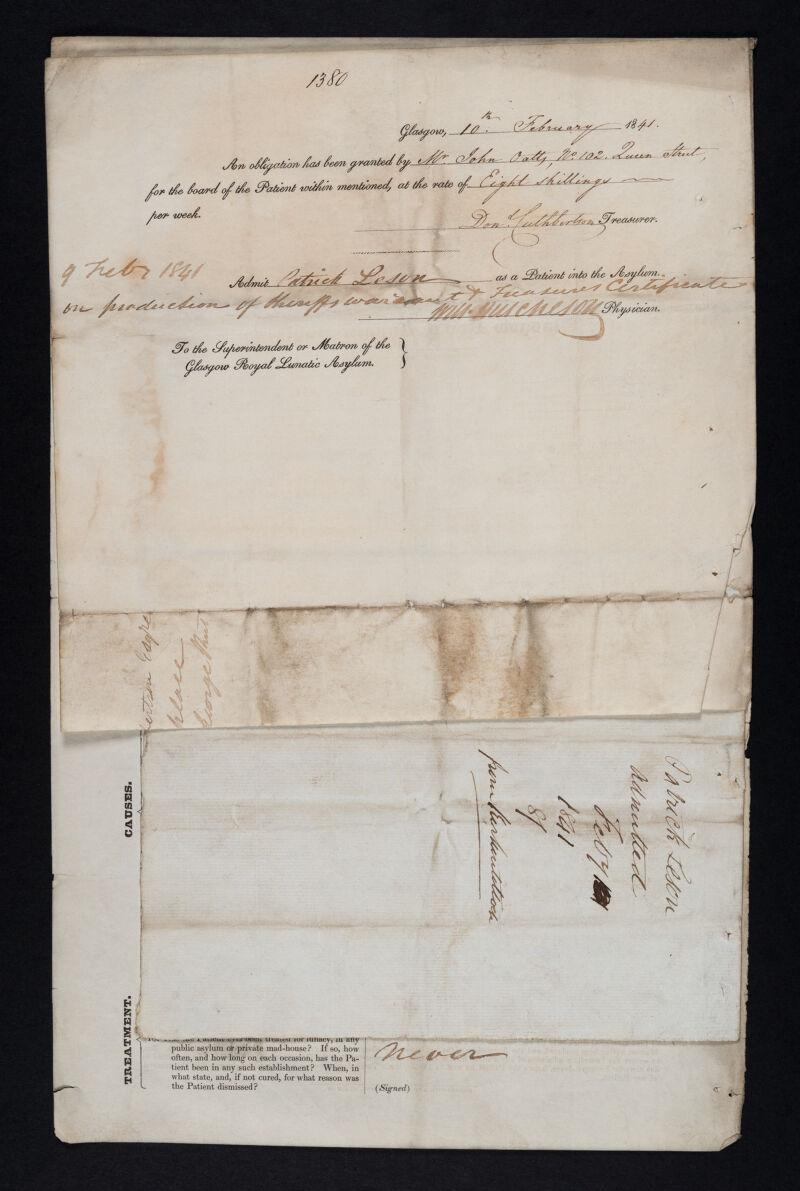 1380
Glasgow, 10th February 1841.
An obligation has been granted by Mr John Oatts, No 102. Queen Street,
for the board of the Patient within mentioned, at the rate of Eight Shillings
per week.
Don. Cuthbertson, Treasurer.
9 Febr 1841
Admit Patrick Leson as a Patient into the Asylum.
on production of Sheriffs warrant & Treasurers Certificate
Will Hutcheson Physician.
To the Superintendent or Matron of the
Glasgow Royal Lunatic Asylum.
Esqre
place
George Street
Patrick Leson
admitted
Feby
1841
8/
from Kirkintilloch
CAUSES.
TREATMENT.
the Patient ever been treated for lunacy, in any
public asylum or private mad-house? If so, how
often, and how long on each occasion, has the Pa-
tient been in any such establishment? When, in
what state, and, if not cured, for what reason was
the Patient dismissed?
never
(Signed)